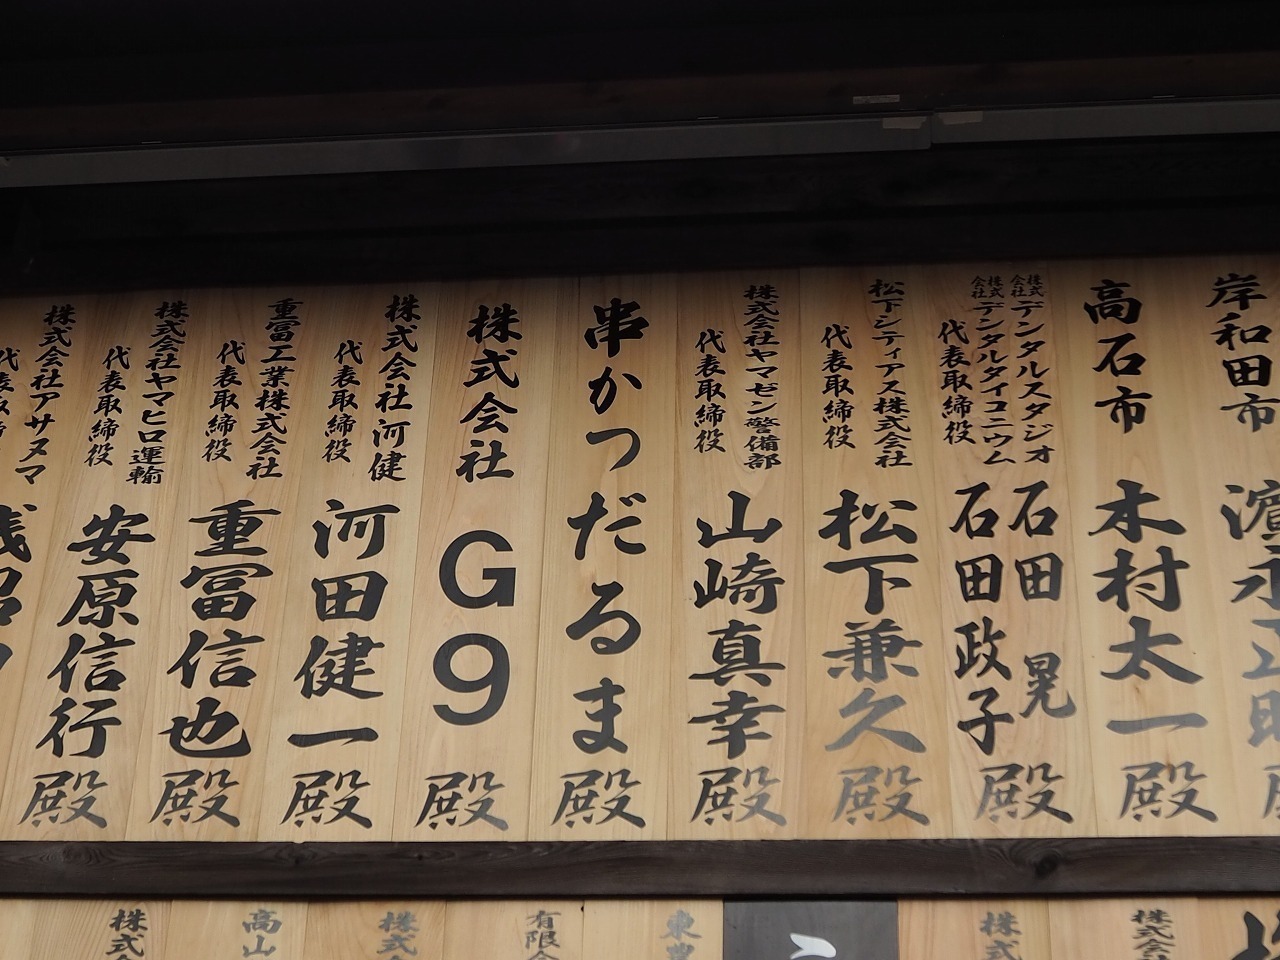 岸和田市
高石市 木村太一 殿
株式会社デンタルスタジオ 石田 晃
株式会社デンタルタイコニウム
代表取締役 石田政子 殿
松下シティアス株式会社
代表取締役 松下兼久 殿
株式会社ヤマゼン警備部
代表取締役 山崎真幸 殿
串かつだるま 殿
株式会社 G9 殿
株式会社河健
代表取締役 河田健一 殿
重冨工業株式会社
代表取締役 重冨信也 殿
株式会社ヤマヒロ運輸
代表取締役 安原信行 殿
株式会社アサヌマ
代表取締
株式会
株式
東豊
有限会
株式
高山
株式会